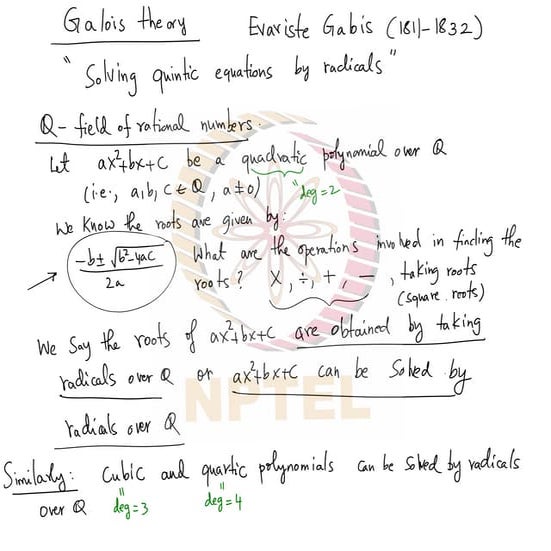 Galois theory Evariste Galois (1811-1832)
"Solving quintic equations by radicals"
Q - field of rational numbers.
Let ax²+bx+c be a quadratic polynomial over Q
(i.e., a,b,c ∈ Q, a≠0) "deg=2
We know the roots are given by:
-b± √b²-4ac
2a
What are the operations involved in finding the
roots? ×, ÷, +, -, taking roots
(square roots)
We say the roots of ax²+bx+c are obtained by taking
radicals over Q or ax²+bx+c can be solved by
radicals over Q
NPTEL
Similarly: cubic and quartic polynomials can be solved by radicals
over Q "deg=3 "deg=4